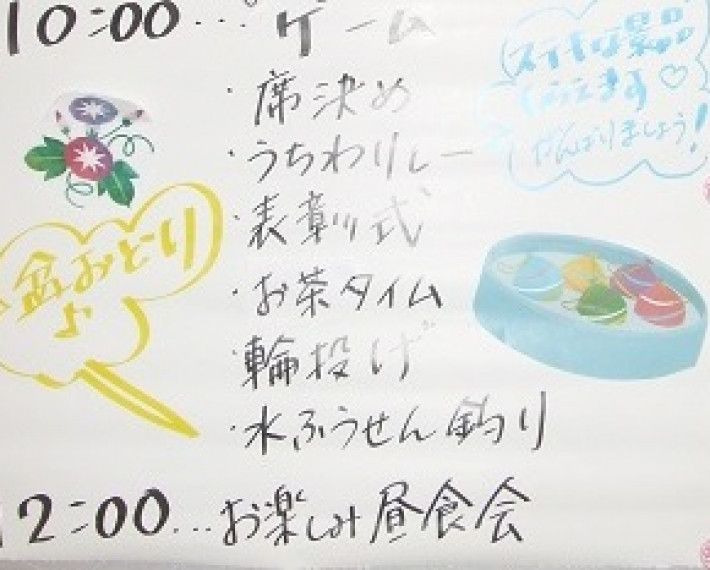 10:00...ゲーム
・席決め
・うちわリレー
・表彰式
・お茶タイム
・輪投げ
・水ふうせん釣り
12:00...お楽しみ昼食会
盆おどり
♪
ステキな景品
もらえます♡
がんばりましょう!